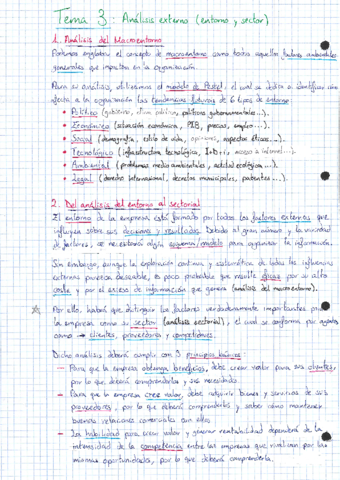 Tema 3: Análisis externo (entorno y sector)
1. Análisis del Macroentorno
Podemos englobar el concepto de macroentorno como todos aquellos factores ambientales
generales que impactan en la organización.
Para su análisis, utilizamos el modelo de Pestel, el cual se dedica a identificar cómo
afecta a la organización las tendencias futuras de 6 tipos de entorno:
• Político (gobierno, clima político, políticas gubernamentales...).
• Económico (situación económica, PIB, precios, empleo...).
• Social (demografía, estilo de vida, opiniones, aspectos éticos...).
• Tecnológico (infraestructura tecnológica, I+D+i, acceso a internet...).
• Ambiental (problemas medio ambientales, actitud ecológica...).
• Legal (derecho internacional, decretos municipales, patentes...).
2. Del análisis del entorno al sectorial
El entorno de la empresa está formado por todos los factores externos que
influyen sobre sus decisiones y resultados. Debido al gran número y la variedad
de factores, se necesitará algún esquema/modelo para organizar la información.
Sin embargo, aunque la exploración continua y sistemática de todas las influencias
externas parezca deseable, es poco probable que resulte eficaz por su alto
coste y por el exceso de información que genera (análisis del macroentorno).
Por ello, habrá que distinguir los factores verdaderamente importantes para
la empresa como su sector (análisis sectorial), el cual se conforma por agentes
como → clientes, proveedores y competidores.
Dicho análisis deberá cumplir con 3 principios básicos:
— Para que la empresa obtenga beneficios, debe crear valor para sus clientes,
por lo que deberá comprenderlos y sus necesidades.
— Para que la empresa cree valor, debe adquirir bienes y servicios de sus
proveedores, por lo que deberá comprenderlos y saber cómo mantener
buenas relaciones comerciales con ellos.
— La habilidad para crear valor y generar rentabilidad dependerá de la
intensidad de la competencia entre las empresas que rivalizan por las
mismas oportunidades, por lo que deberá comprenderla.